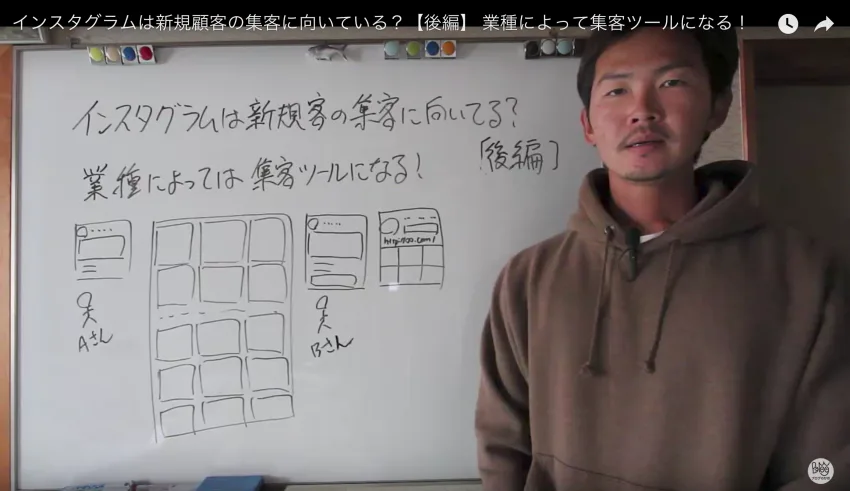 インスタグラムは新規顧客の集客に向いている？【後編】 業種によって集客ツールになる！
インスタグラムは新規客の集客に向いてる?
業種によっては集客ツールになる!
「後編」
Aさん
Bさん